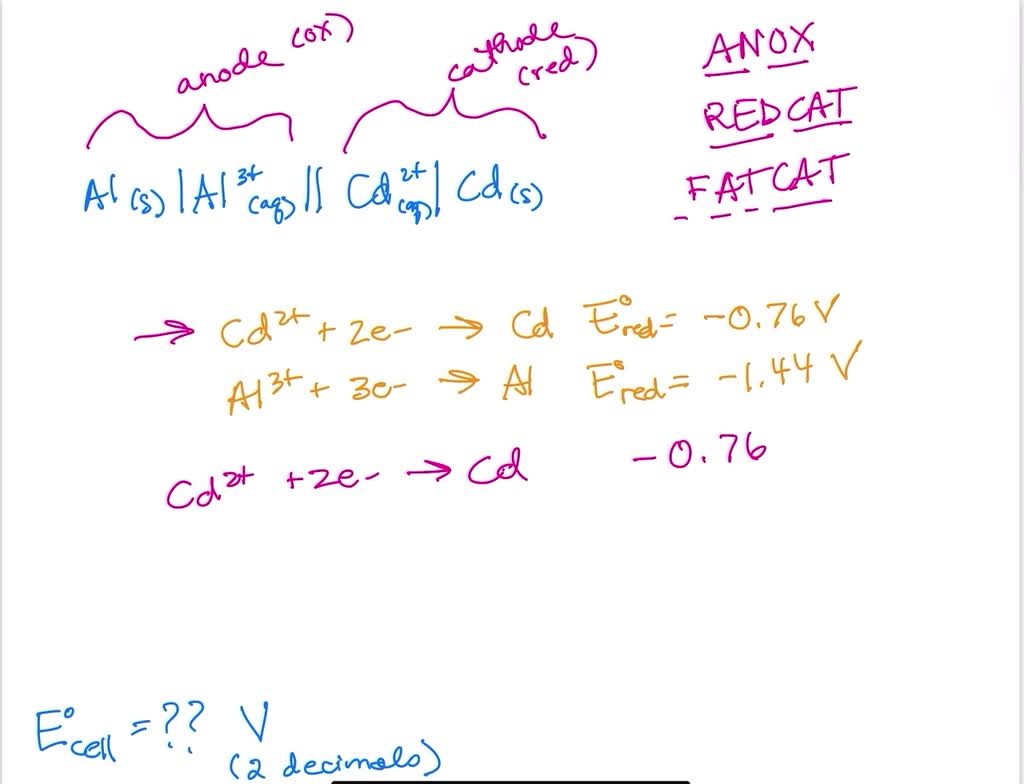 anode (ox)
cathode
(red)
ANOX
REDCAT
FATCAT
Al (s) | Al³⁺(aq) || Cd²⁺(aq) | Cd (s)
→ Cd²⁺ + 2e- → Cd E°red = -0.76 V
Al³⁺ + 3e- → Al E°red = -1.44 V
Cd²⁺ + 2e- → Cd -0.76
E°cell = ?? V
(2 decimals)